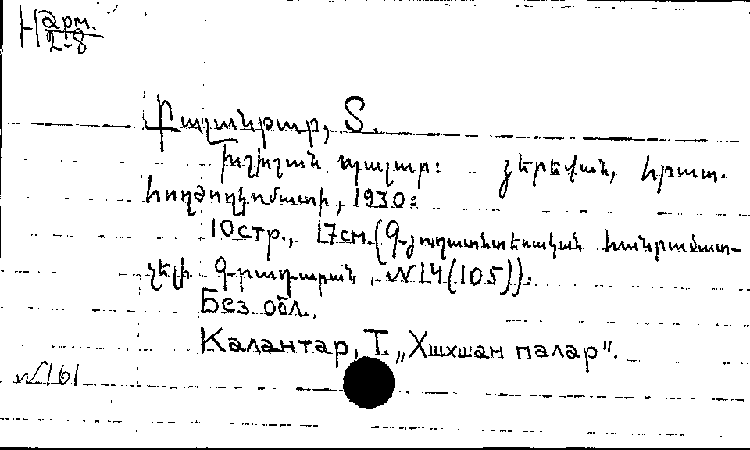 Н арм.
2-8
Քալանթար, Տ.
Խշխշան պալար։ Յերեվան, հրատ.
Հողժողկոմատի, 1930։
10стр., 17см. (Գյուղատնտեսական հանրամատ-
չելի գրադարան, №14(105)).
Без обл.
Калантар, Т. „Хшхшан палар".
№161